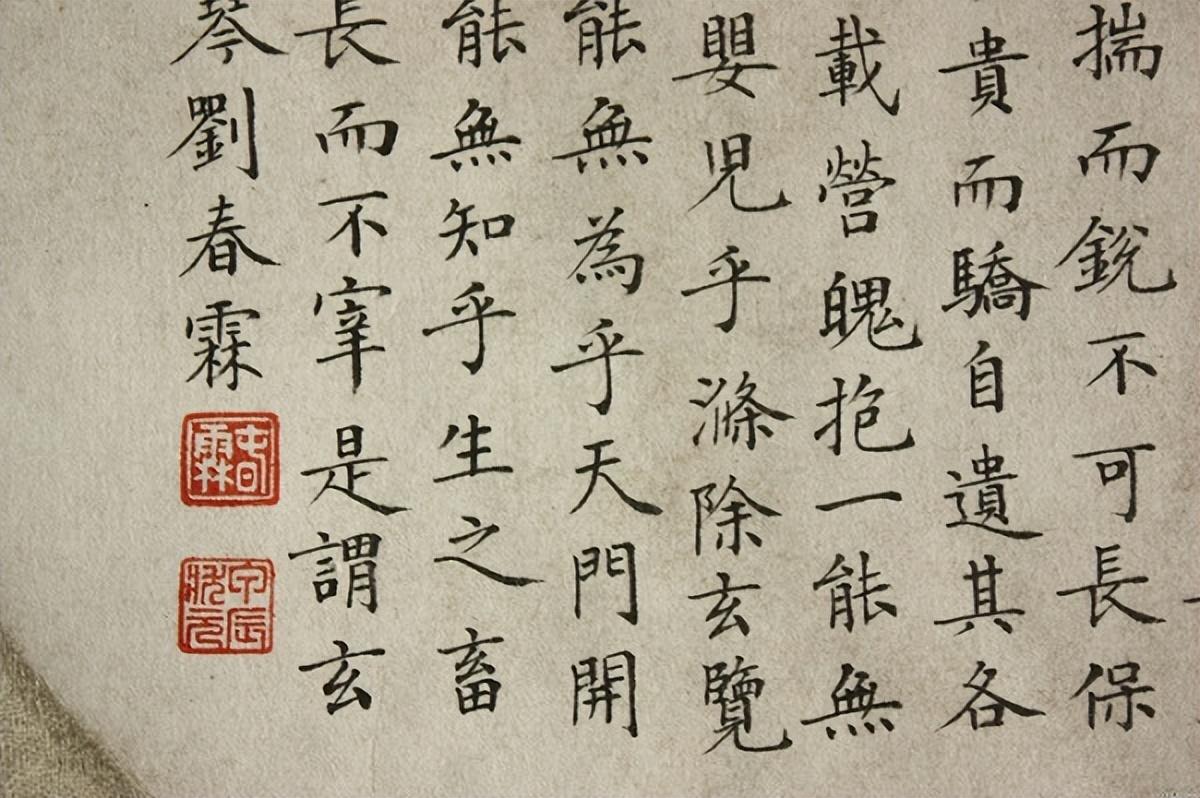 揣而銳不可長保
貴而驕自遺其各
載營魄抱一能無
嬰児乎滌除玄覽
能無為乎天門開
能無知乎生之畜
長而不宰是謂玄
琴劉春霖
春霖
甲辰狀元